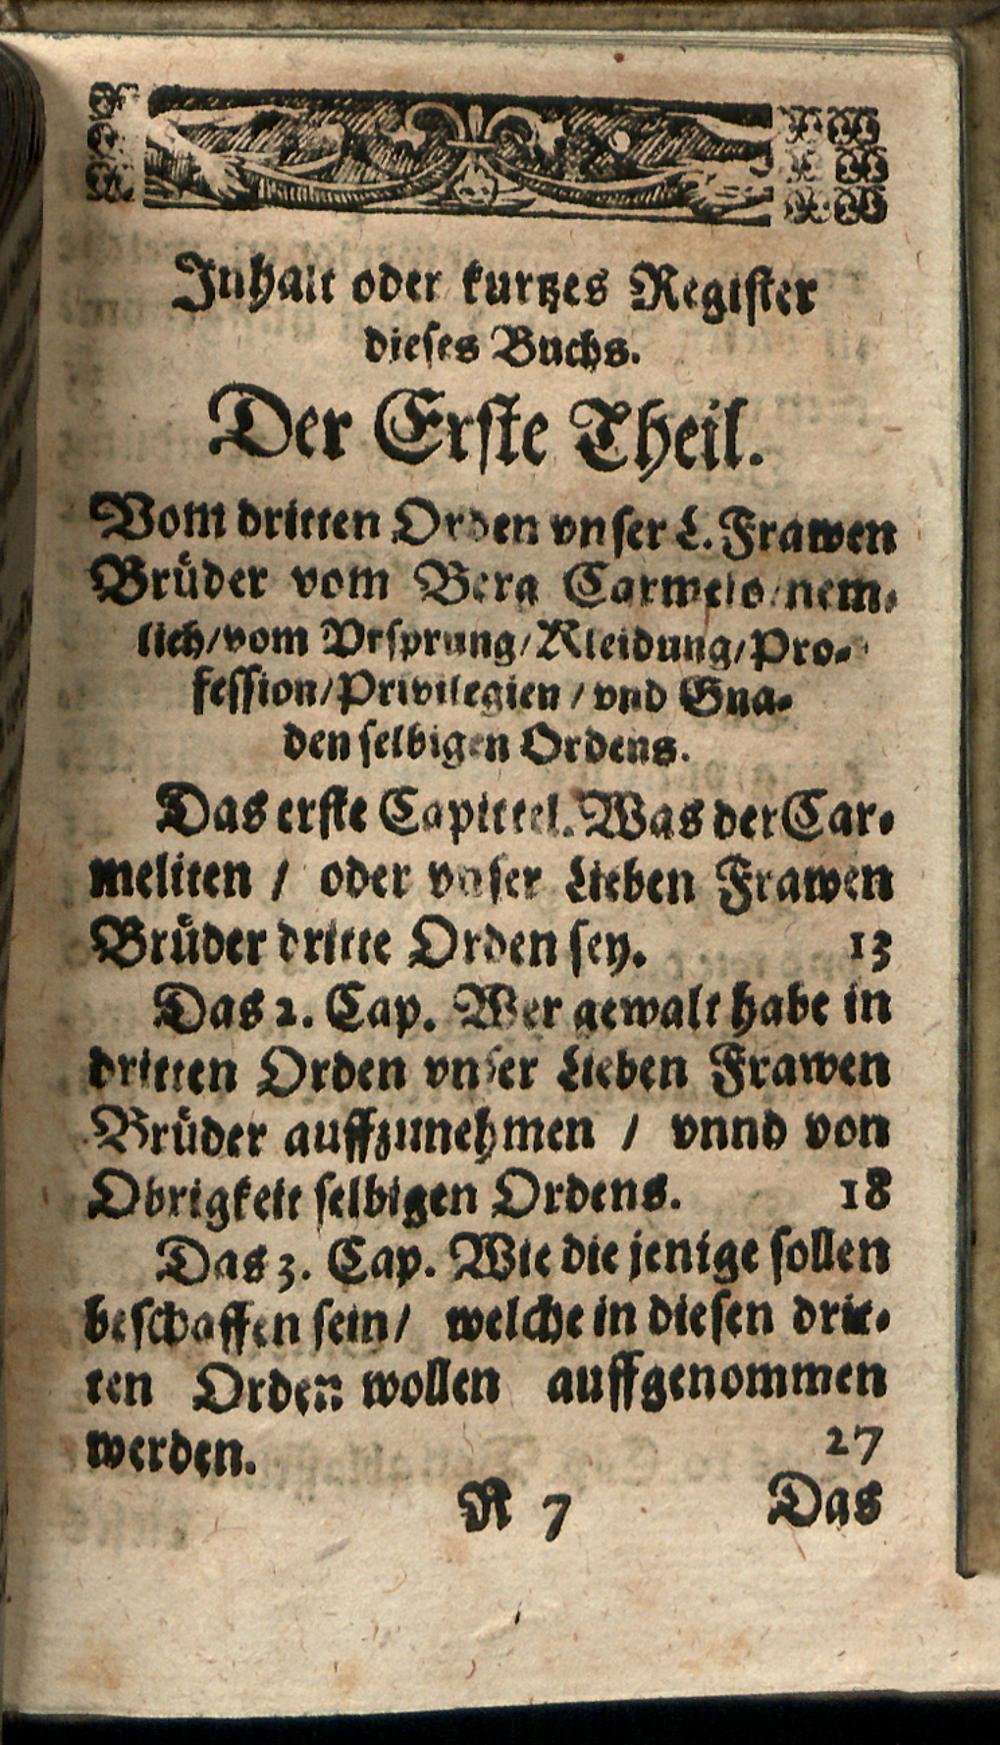 Inhalt oder kurtzes Register
dieses Buchs.
Der Erste Theil.
Vom dritten Orden vnser L. Frawen
Brüder vom Berg Carmelo/nem-
lich/vom Vrsprung/Kleidung/Pro-
fession/Privilegien/vnd Gna-
den selbigen Ordens.
Das erste Capittel. Was der Car-
meliten / oder vnser Lieben Frawen
Brüder dritte Orden sey. 13
Das 2. Cap. Wer gewalt habe in
dritten Orden vnser Lieben Frawen
Brüder auffzunehmen / vnnd von
Obrigkeit selbigen Ordens. 18
Das 3. Cap. Wie die jenige sollen
beschaffen sein/ welche in diesen drit-
ten Orden wollen auffgenommen
werden. 27
R 7 Das